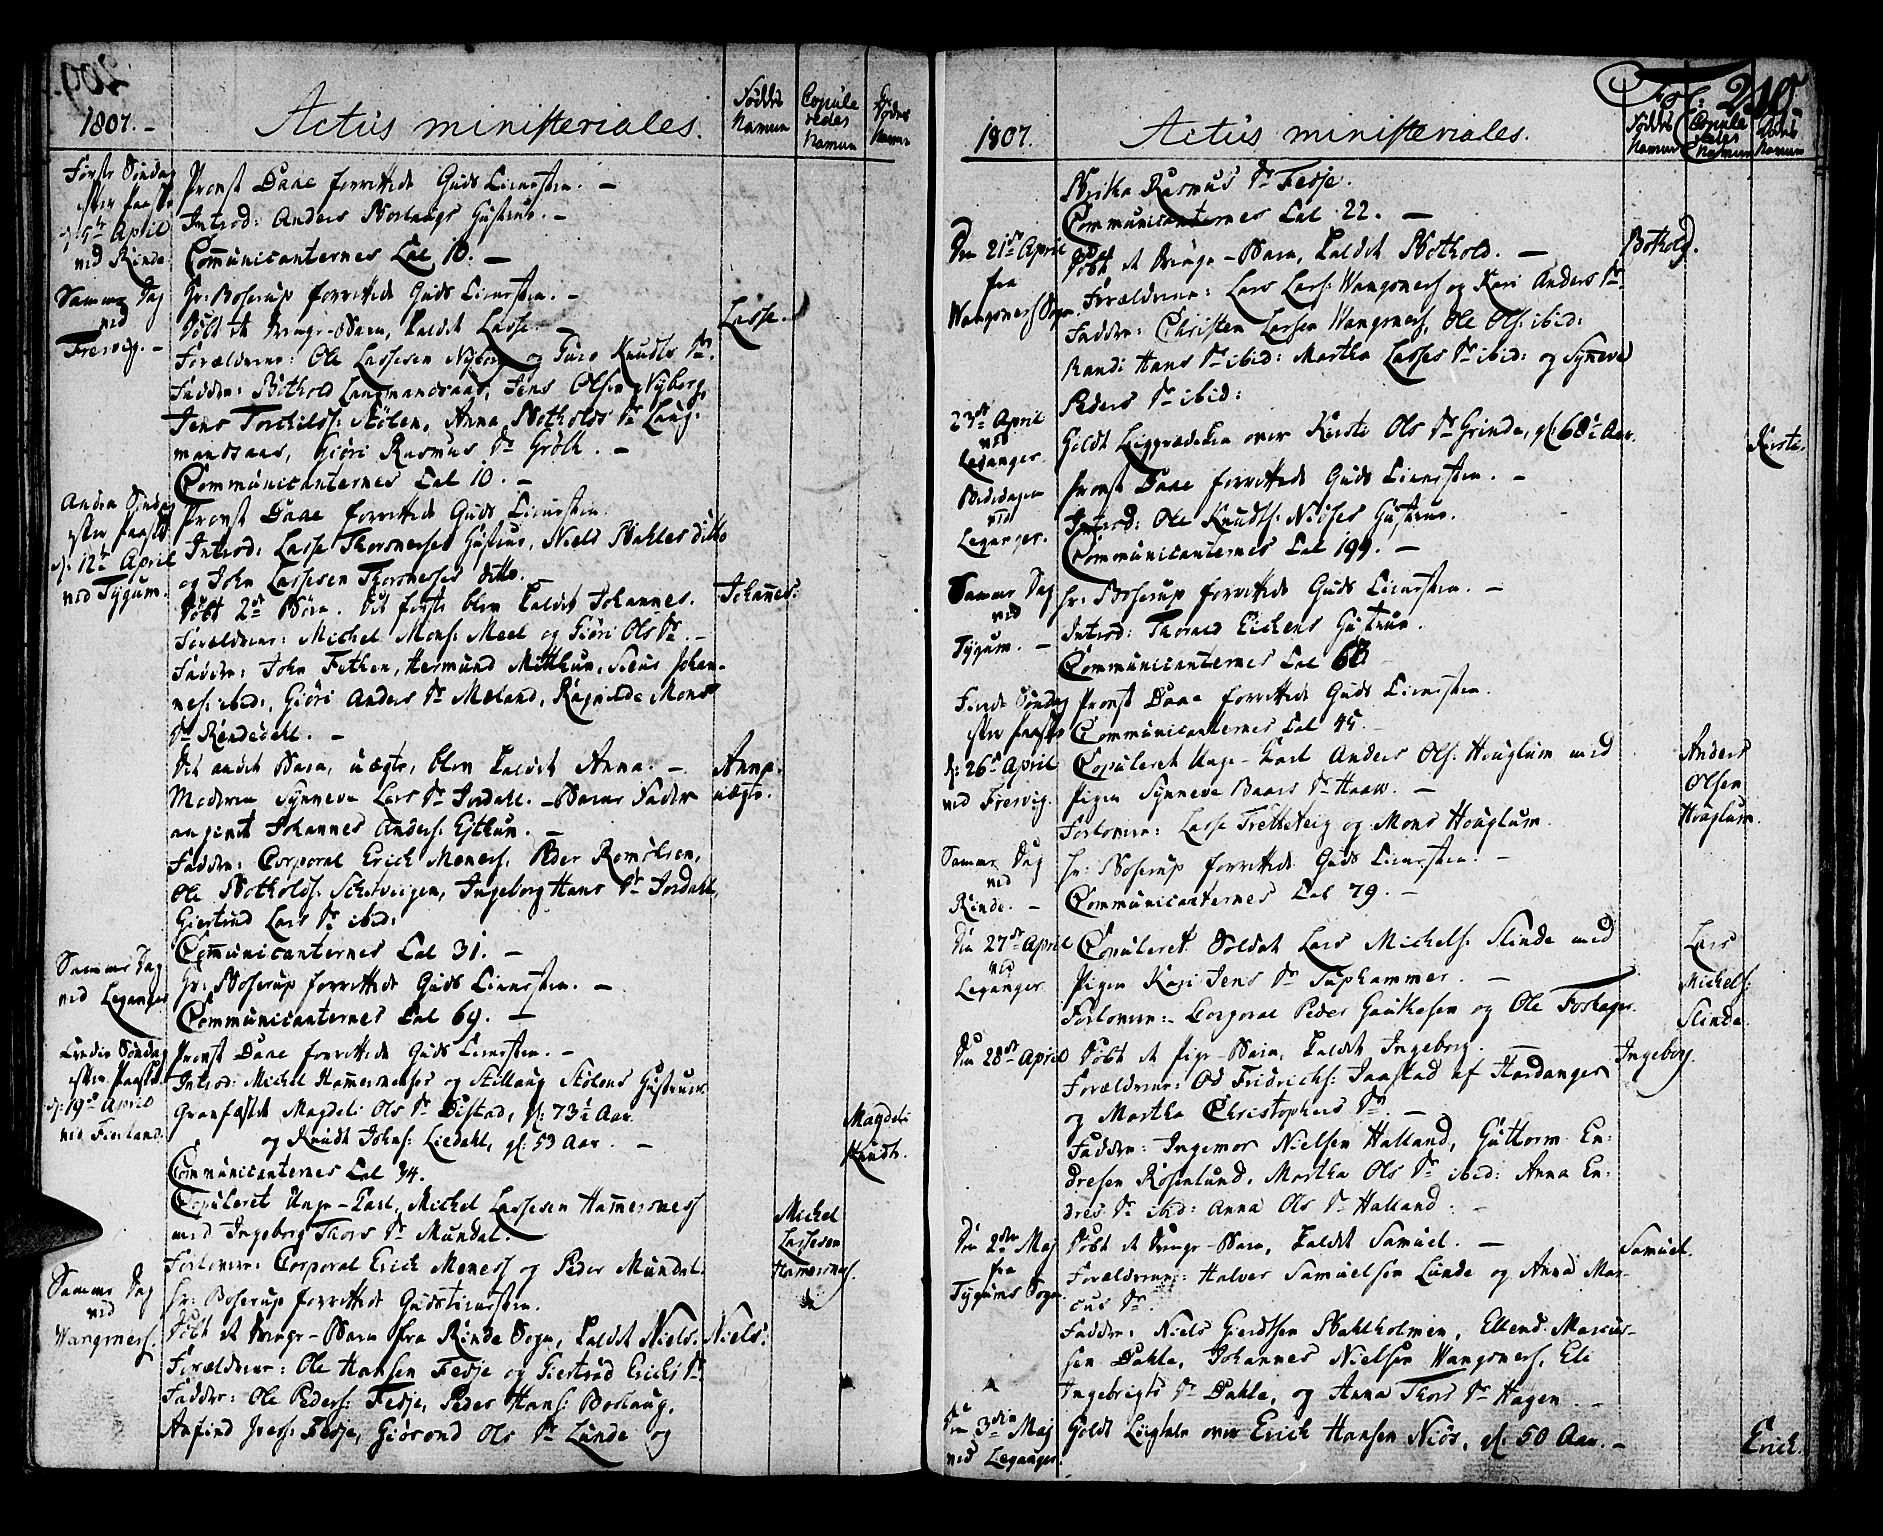 1807.-
Actus ministeriales.
Fødde Namne
Copule redes Namne
Dødes Namne
Første Søndag
efter Paaske
d: 5te April
ved Rinde.
Provst Daae forrettede Guds Tienesten. -
Introd: Anders Borlaugs Hustrue. -
Communicanternes Tal 10. -
Samme Dag
ved
Fresvig. -
Hr: Boserup forrettede Guds Tienesten. -
Døbt et Drenge-Barn, kaldet Lasse. -
Lasse.
Forældrene: Ole Lassesen Nyborg og Turo Knudts Dr.
Faddere: Bothold Laugmandsaas, Jens Olsen Nyberg,
Jens Torchilds: Stølen, Anna Botholds Dr Laug-
mandsaas, Giøri Rasmus Dr Grøth. -
Communicanternes Tal 10. -
Anden Søndag
efter Paaske
d: 12te April
ved Tygum.
Provst Daae forrettede Guds Tienesten.
Introd: Lasse Thorsnesses Hustrue, Niels Bahles ditto
og John Lassesen Thorsnesses ditto.
Døbt 2de Børn. Det første blev kaldet Johannes.
Johannes:
Forældrene: Michel Mons: Meel og Giøri Ols Dr. -
Faddere: John Fethen, Hermund Mitthun, Siur Johan-
nes: ibid:, Giøri Anders Dr Mæland, Ragnilde Mons
Dr Rindedahl. -
Det andet Barn, uægte, blev kaldet Anna. -
Anna
uægte.
Moderen Synneva Lars Dr Jordahl. - Barne Fader
angivet Johannes Anders: Eithun. -
Faddere: Corporal Erich Moness, Peder Romøhren,
Ole Botholds: Schveigen, Ingeborg Hans Dr Jordahl,
Giertrud Lars Dr ibid:
Communicanternes Tal 31. -
Samme Dag
ved Leganger
Hr: Boserup forrettede Guds Tienesten. -
Communicanternes Tal 69. -
Tredie Søndag
efter Paaske
d: 19de April
ved Fierland.
Provst Daae forrettede Guds Tienesten. -
Introd: Michel Hamersnesses og Stillaug Stølens Hustruer
Graufæstet Magdeli Ols Dr Distad, gl: 73½ Aar
og Knudt Johns: Liedahl, gl: 53 Aar. -
Magdeli
Knudt.
Communicanternes Tal 34.
Copuleret Unge-Karl, Michel Lassesen Hamersness
med Ingeborg Thors Dr Mundal. -
Michel
Lassesen
Hamersness.
Forlovere: Corporal Erich Moness og Peder Mundal.
Samme Dag
ved
Wangsness.
Hr: Boserup forrettede Guds Tienesten.
Døbt et Drenge-Barn fra Rinde Sogn, kaldet Niels.
Niels:
Forældrene: Ole Hansen Fedje og Giertrud Erichs Dr
Faddere: Ole Peders: Fedje, Peder Hans: Borlaug,
Anfind Ivers: Fedje, Giørond Ols Dr Lunde og
Fol: 210.
1807.
Actus ministeriales.
Fødde Namne
Copule redes Namne
Dødes Namne
Britha Rasmus Dr Fedje.
Communicanternes Tal 22. -
Den 21de April
fra
Wangsness Sogn.
Døbt et Drenge-Barn, kaldet Bothold. -
Bothold.
Forældrene: Lars Lars: Wangsness og Kari Anders Dr.
Faddere: Christen Larsen Wangsness, Ole Ols: ibid:
Randi Hans Dr ibid: Martha Lasses Dr ibid: og Synneva
Peders Dr ibid:
23de April
ved
Leganger.
Holdt Liigprædiken over Kirsti Ols Dr Grinde, gl: 68½ Aar.
Kirsti.
Bededagen
ved
Leganger.
Provst Daae forrettede Guds Tienesten. -
Introd: Ole Knudts: Niøses Hustrue.
Communicanternes Tal 199. -
Samme Dag
ved
Tygum. -
Hr: Boserup forrettede Guds Tienesten. -
Introd: Thorsted Eichens Hustrue.
Communicanternes Tal 60
Fierde Søndag
efter Paaske
d: 26de April
ved Fresvig.
Provst Daae forrettede Guds Tienesten.
Communicanternes Tal 45.
Copuleret Unge-Karl Anders Ols: Houglum med
Pigen Synneva Baars Dr Haaw. -
Anders
Olsen
Houglum.
Forlovere: Lasse Tretteteig og Mons Houglum.
Samme Dag
ved
Rinde. -
Hr: Boserup forrettede Guds Tienesten. -
Communicanternes Tal 79. -
Den 27de April
ved
Leganger.
Copuleret Soldat Lars Michels: Slinde med
Pigen Kari Jens Dr Tuphammer. -
Lars
Michels:
Slinde.
Forlovere:- Corporal Peder Gaukesen og Ole Foshager.
Den 28de April
Døbt et Pige-Barn, kaldet Ingeborg. -
Ingeborg.
Forældrene: Od Fridrichs: Jaastad af Hardanger
og Martha Christophers Dr. -
Faddere: Ingemor Nielsen Halland, Guttorm En-
dresen Rosenlund, Martha Ols Dr ibid: Anna En-
dres Dr ibid: Anna Ols Dr Halland.
Den 2den Maj
fra
Tygums Sogn.
Døbt et Drenge-Barn, kaldet Samuel. -
Samuel.
Forældrene: Halvor Samuelsen Lunde og Anna Mar-
cus Dr.
Faddere: Niels Giertsen Bahlholmen, Ellend Marcus-
sen Dahle, Johannes Nielsen Wangsness, Eli
Ingebrigts Dr Dahle, og Anna Thors Dr Hagen.
Den 3die Maj
ved Leganger.
Holdt Liigtale over Erich Hansen Niøs, gl: 50 Aar. -
Erich.